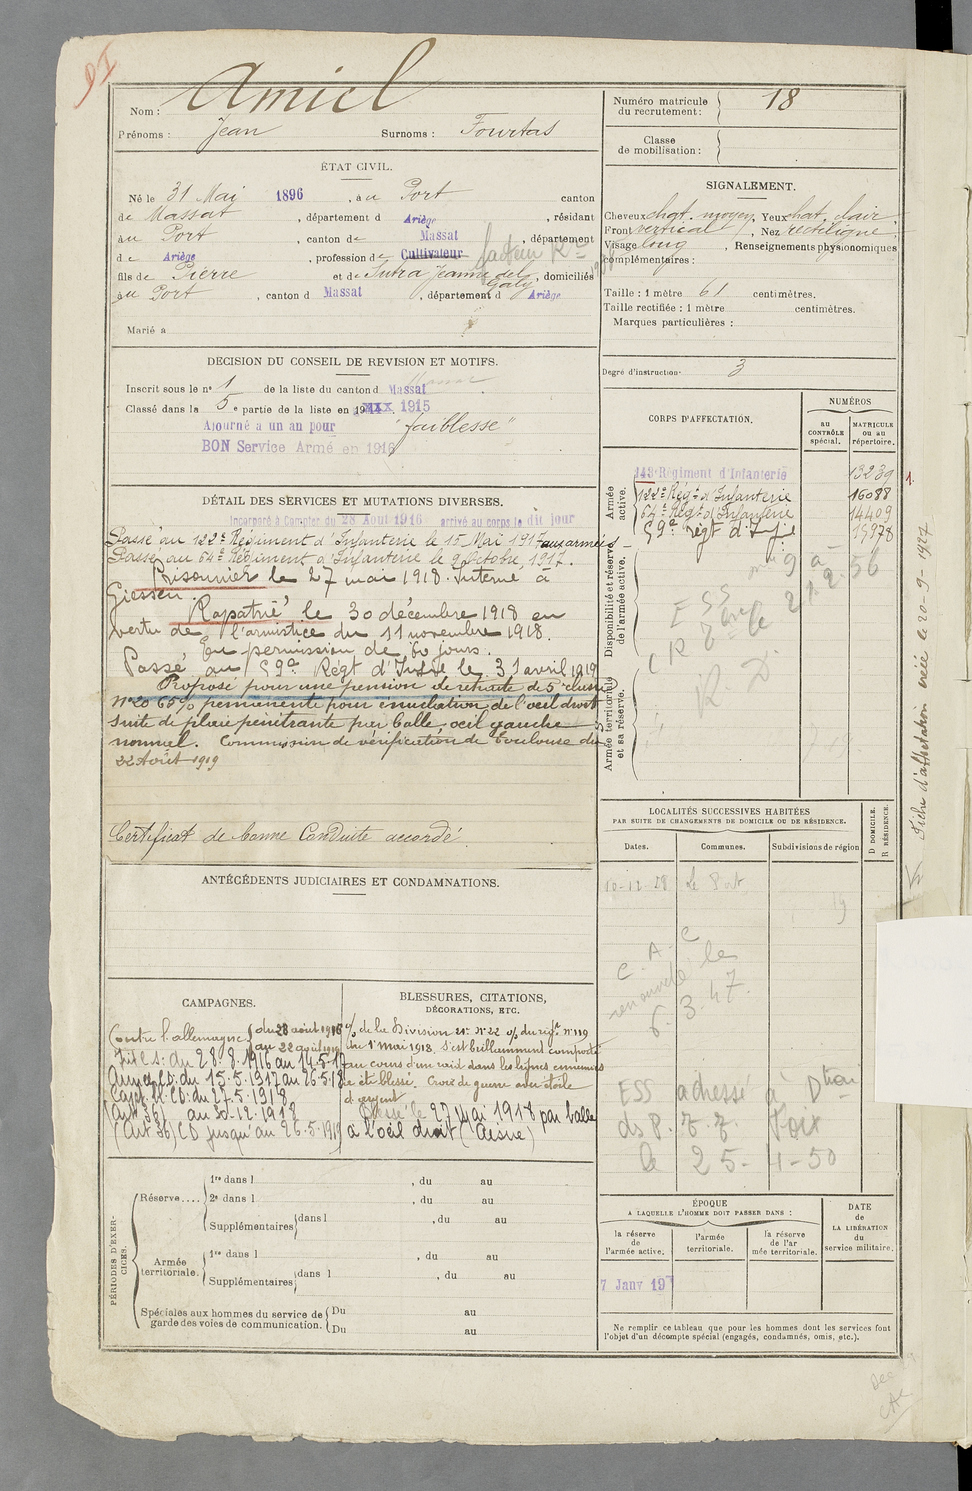 Nom : Amiel
Prénoms : Jean Surnoms : Fourtas
ÉTAT CIVIL.
Né le 31 Mai 1896, à au Port canton
de Massat, département d Ariège, résidant
au Port, canton de Massat, département
d e Ariège, profession de Cultivateur facteur
fils de Pierre et de Sutra Jeanne del Galy, domiciliés
au Port, canton d Massat, département d Ariège
Marié a
DECISION DU CONSEIL DE REVISION ET MOTIFS.
Inscrit sous le n° 1 de la liste du canton d Massat
Classé dans la 5 e partie de la liste en 1915
Ajourné a un an pour "faiblesse"
BON Service Armé en 1916
DÉTAIL DES SERVICES ET MUTATIONS DIVERSES.
Incorporé à Compter du 28 Août 1916 arrivé au corps le dit jour
Passé au 122e Régiment d'Infanterie le 15 Mai 1917 aux armées
Passé au 64e Régiment d'Infanterie le 9 Octobre 1917.
Prisonnier le 27 mai 1918. Interné à
Giessen.
Rapatrié le 30 décembre 1918 en
vertu de l'armistice du 11 novembre 1918.
En permission de 60 jours.
Passé au 59e Régt d'Inftie le 31 avril 1919
Proposé pour une pension de retraite de 5e classe
N° 20 65% permanente pour énucléation de l'oeil droit
suite de plaie pénétrante par balle oeil gauche
normal. Commission de vérification de Toulouse du
22 Août 1919
Certificat de bonne Conduite accordé.
ANTÉCÉDENTS JUDICIAIRES ET CONDAMNATIONS.
CAMPAGNES.
Contre l'allemagne du 28 août 1916
au 22 août 1919
Int. C.S: du 28.8.1916 au 14.5.17
Armées C.D. du 15.5.1917 au 26.5.18
Capt. C.D. du 27.5.1918
(Art 36) au 30.12.1918
(Art 36) CD jusqu'au 26.5.1919
BLESSURES, CITATIONS,
DÉCORATIONS, ETC.
o/ de la Division 21e N° 22 o/ du régt N° 119
du 1er mai 1918. S'est brillamment comporté
au cours d'un raid dans les lignes ennemies
a été blessé. Croix de guerre avec étoile
d'argent
Blessé le 27 Mai 1918 par balle
à l'oeil droit (Aisne)
PÉRIODES D'EXERCICES.
Réserve.... 1re dans l , du au
2e dans l , du au
Supplémentaires dans l , du au
Armée territoriale. 1re dans l , du au
Supplémentaires dans l , du au
Spéciales aux hommes du service de garde des voies de communication. Du au
Du au
Numéro matricule
du recrutement : 18
Classe
de mobilisation :
SIGNALEMENT.
Cheveux chat. moyen Yeux chat. clair
Front vertical, Nez rectiligne
Visage long, Renseignements physionomiques
complémentaires :
Taille : 1 mètre 61 centimètres.
Taille rectifiée : 1 mètre centimètres.
Marques particulières :
Degré d'instruction : 3
CORPS D'AFFECTATION.
NUMÉROS
au CONTRÔLE spécial.
MATRICULE ou au répertoire.
Armée active.
143e Régiment d'Infanterie 13239
122e Régt d'Infanterie 16088
64e Régt d'Infanterie 14409
59e Régt d'Inftie 15978
Disponibilité et réserve de l'armée active.
Armée territoriale et sa réserve.
R D.
LOCALITÉS SUCCESSIVES HABITÉES
PAR SUITE DE CHANGEMENTS DE DOMICILE OU DE RÉSIDENCE.
D DOMICILE.
R RÉSIDENCE.
Dates. Communes. Subdivisions de région
10-12-28 Le Port
C.A.C
renouvelé le
6.3.47.
ESS adressé à Dtion
ds P. Foix
le 25-4-50
ÉPOQUE
A LAQUELLE L'HOMME DOIT PASSER DANS :
la réserve de l'armée active.
l'armée territoriale.
la réserve de l'armée territoriale.
DATE de LA LIBÉRATION du service militaire.
7 Janv 19
Ne remplir ce tableau que pour les hommes dont les services font
l'objet d'un décompte spécial (engagés, condamnés, omis, etc.).
Fiche d'affectation créée le 20-9-1927